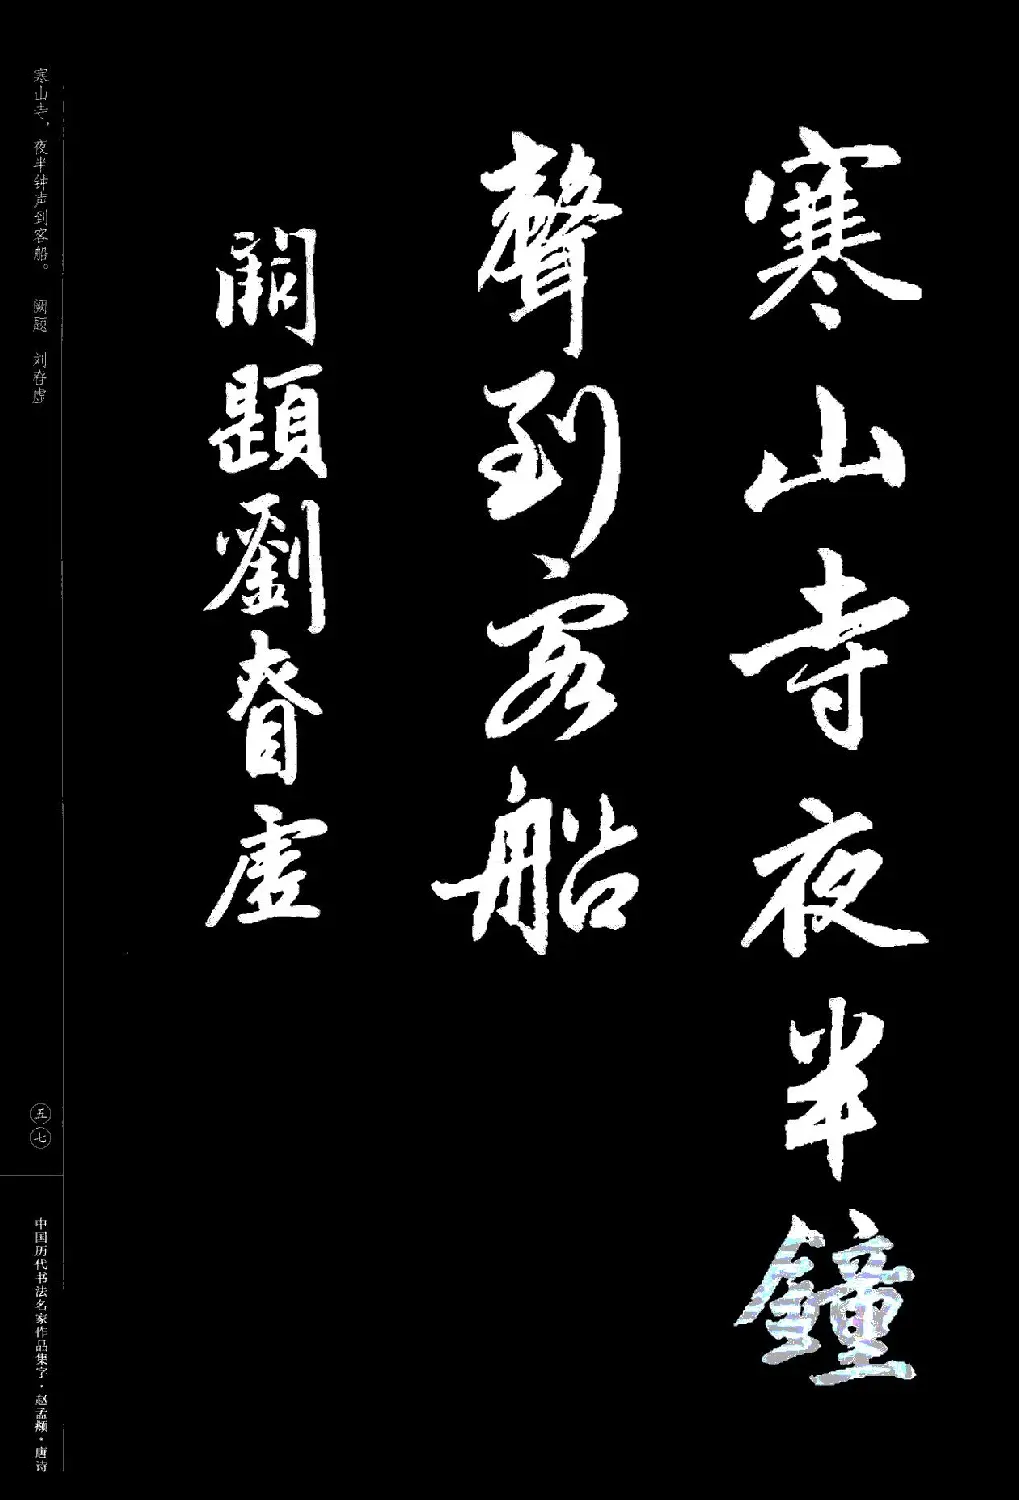 寒山寺夜半鐘
聲到客船
闕題劉眘虛
寒山寺，夜半钟声到客船。 阙题 刘眘虚
五七
中国历代书法名家作品集字·赵孟頫·唐诗